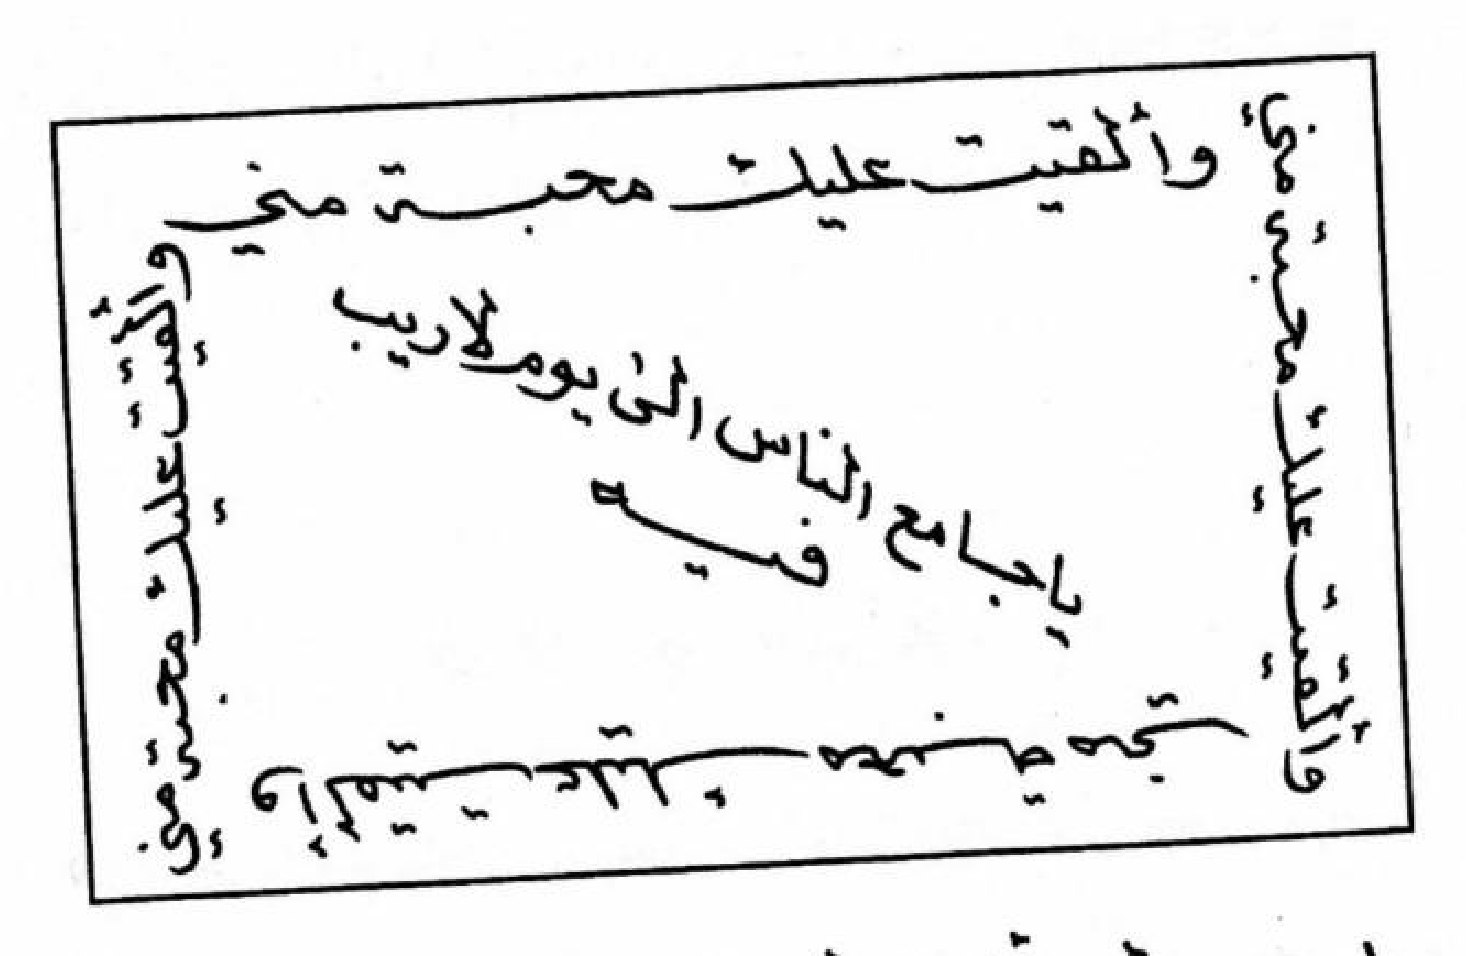 وألقيت عليك محبة مني
وألقيت عليك محبة مني
وألقيت عليك محبة مني
وألقيت عليك محبة مني
يا جامع الناس إلى يوم لا ريب
فيه